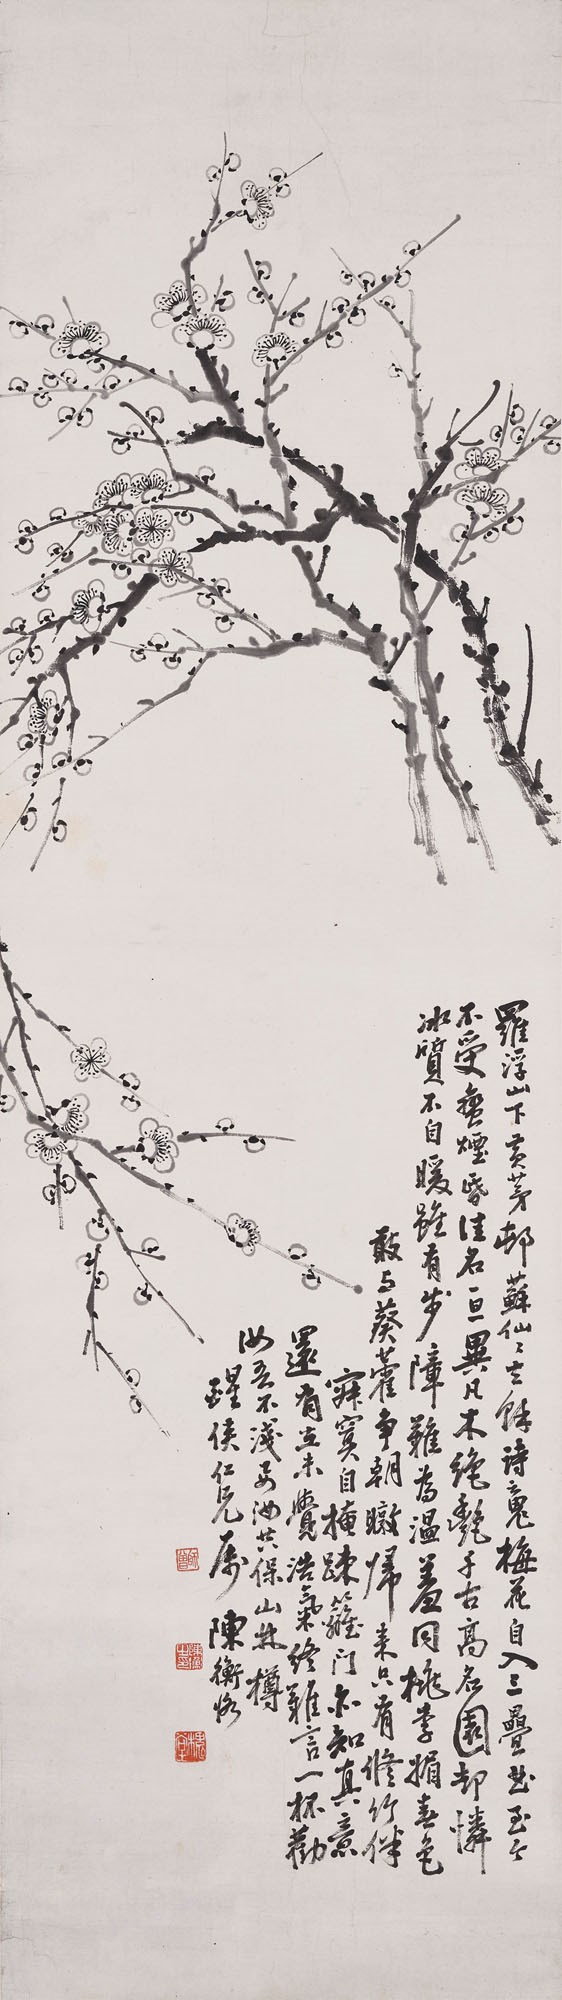 羅浮山下黃茅村蘇仙〻去餘詩魂梅花自入三疊曲至今
不受蠻煙昏佳名一旦異凡木絕艷千古高名園却憐
冰質不自暖雖有步障難為溫羞同桃李媚春色
敢与葵藿爭朝暾歸來只有脩竹伴
寂寞自掩疎籬門亦知真意
還有在未覺浩氣終難言一杯勸
汝吾不淺要汝共保山林樽
醒俠仁兄屬 陳衡恪